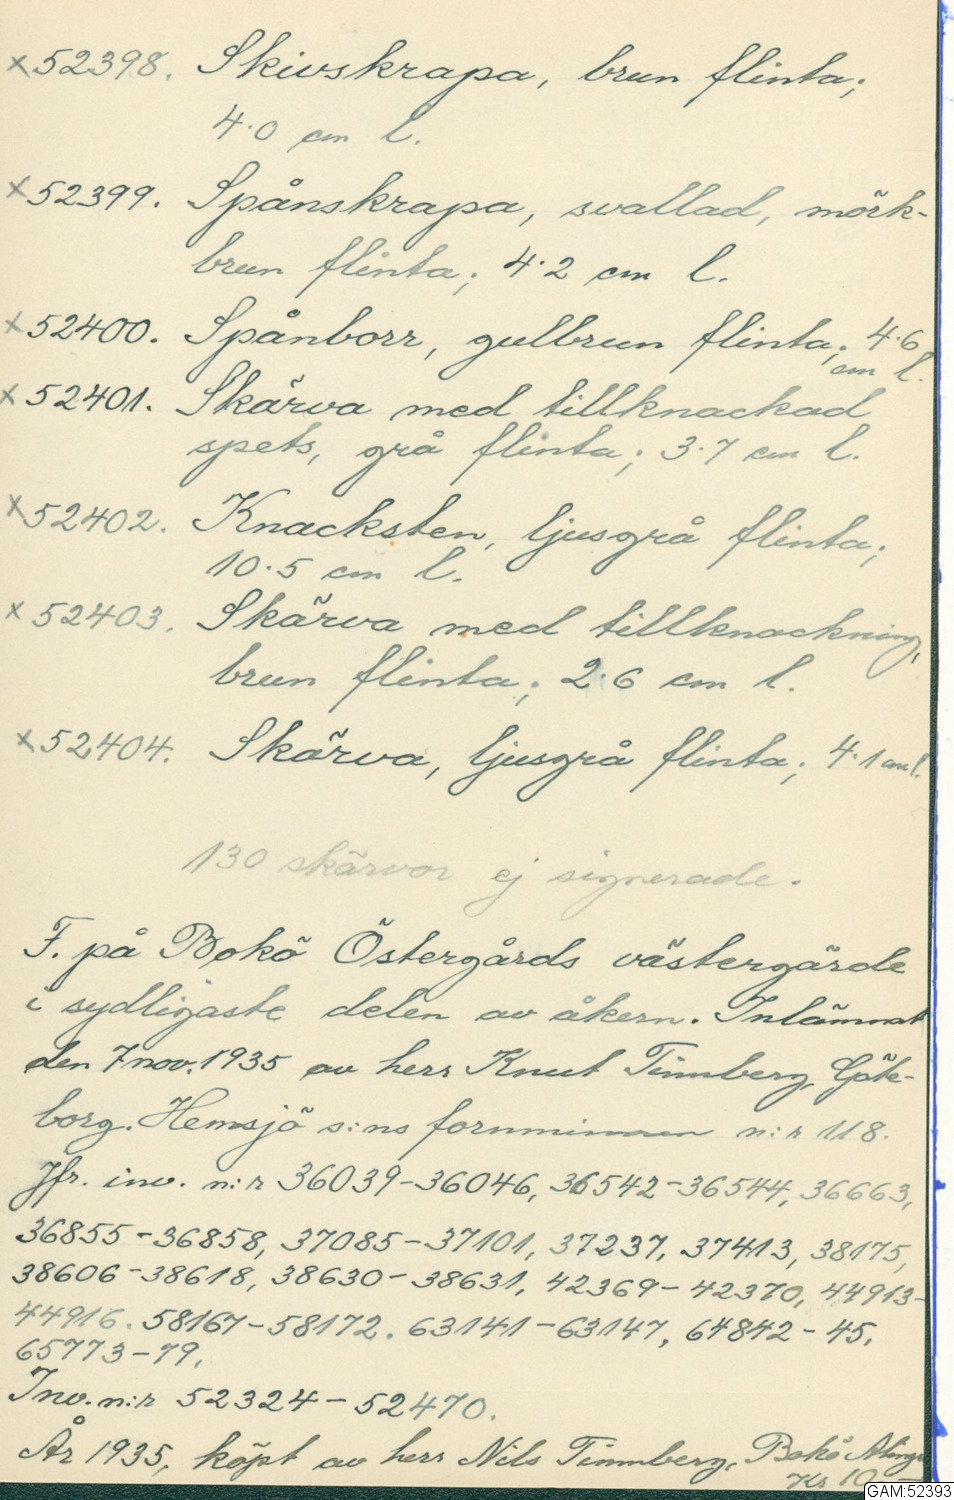 x 52398. Skivskrapa, brun flinta;
4.0 cm l.
x 52399. Spånskrapa, svallad, mörk-
brun flinta; 4.2 cm l.
x 52400. Spånborr, gulbrun flinta; 4.6
cm l.
x 52401. Skärva med tillknackad
spets, grå flinta; 3.7 cm l.
x 52402. Knacksten, ljusgrå flinta;
10.5 cm l.
x 52403. Skärva med tillknackning,
brun flinta; 2.6 cm l.
x 52404. Skärva, ljusgrå flinta; 4.1 cm l.
130 skärvor ej signerade.
F. på Bokö Östergårds västergärde
i sydligaste delen av åkern. Inlämnat
den 7 nov. 1935 av herr Knut Timmberg, Göte-
borg. Hemsjö s:ns fornminnen n:r 118.
Jfr. inv. n:r 36039-36046, 36542-36544, 36663,
36855-36858, 37085-37101, 37237, 37413, 38175,
38606-38618, 38630-38631, 42369-42370, 44913-
44916. 58167-58172. 63141-63147, 64842-45.
65773-79.
Inv. n:r 52324-52470.
År 1935, köpt av herr Nils Timmberg, Bokö
Kr 10.-
GAM:52393